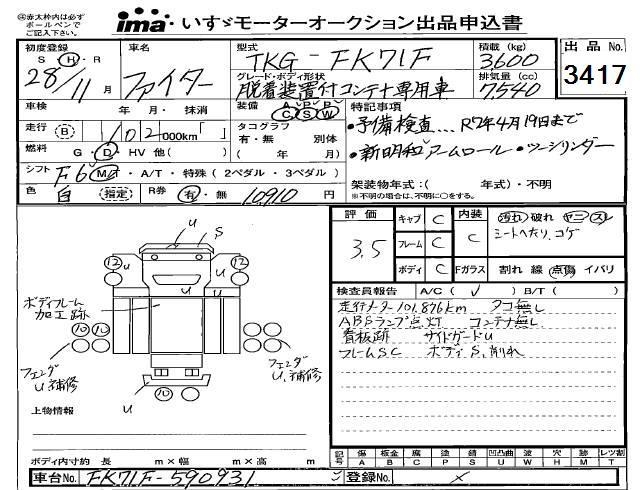 ㊟赤太枠内は必ず
ボールペンで
ご記入下さい。
ima いすゞモーターオークション出品申込書
初度登録
S Ⓗ・R
28/11月
車名
ファイター
型式
TKG-FK71F
積載(kg)
3600
出品No.
3417
グレード・ボディ形状
脱着装置付コンテナ専用車
排気量(cc)
7540
車検 年・月・抹消
装備 A P P
C S W
特記事項
・予備検査...R7年4月19日まで
走行 (B) 102 000km「 」
タコグラフ
有・無 別体
( 年 月)
・新明和アームロール・ツーシリンダー
燃料 G・D・HV 他( )
シフト F6 M・A/T・特殊(2ペダル・3ペダル)
架装物年式:( 年式)・不明
※不明の場合は、不明に○をする。
色 白 (指定) R券 有・無 10910 円
評価
3.5
キャブ C
フレーム C
ボディ C
内装
C
Fガラス
汚れ 破れ ヤニ・スレ
シートへたり、コゲ
割れ 線 点傷 イバリ
検査員報告 A/C( ✓ ) B/T( )
走行メーター101.876km タコ無し
ABSランプ点灯 コンテナ無し
看板跡 サイドガードU
フレームSC ボディS,削れ
U S
12 12
U U
ボディフレーム
加工跡
10 10
フェンダ
U,補修
フェンダ
U,補修
U 10
上物情報
ボディ内寸約 長 m×幅 m×高 m
記号 傷 板金 腐 塗 錆 凹凸曲 波 穴 飛 レツ割
A B C P S U W H M T
車台No. FK71F-590931
登録No. ×